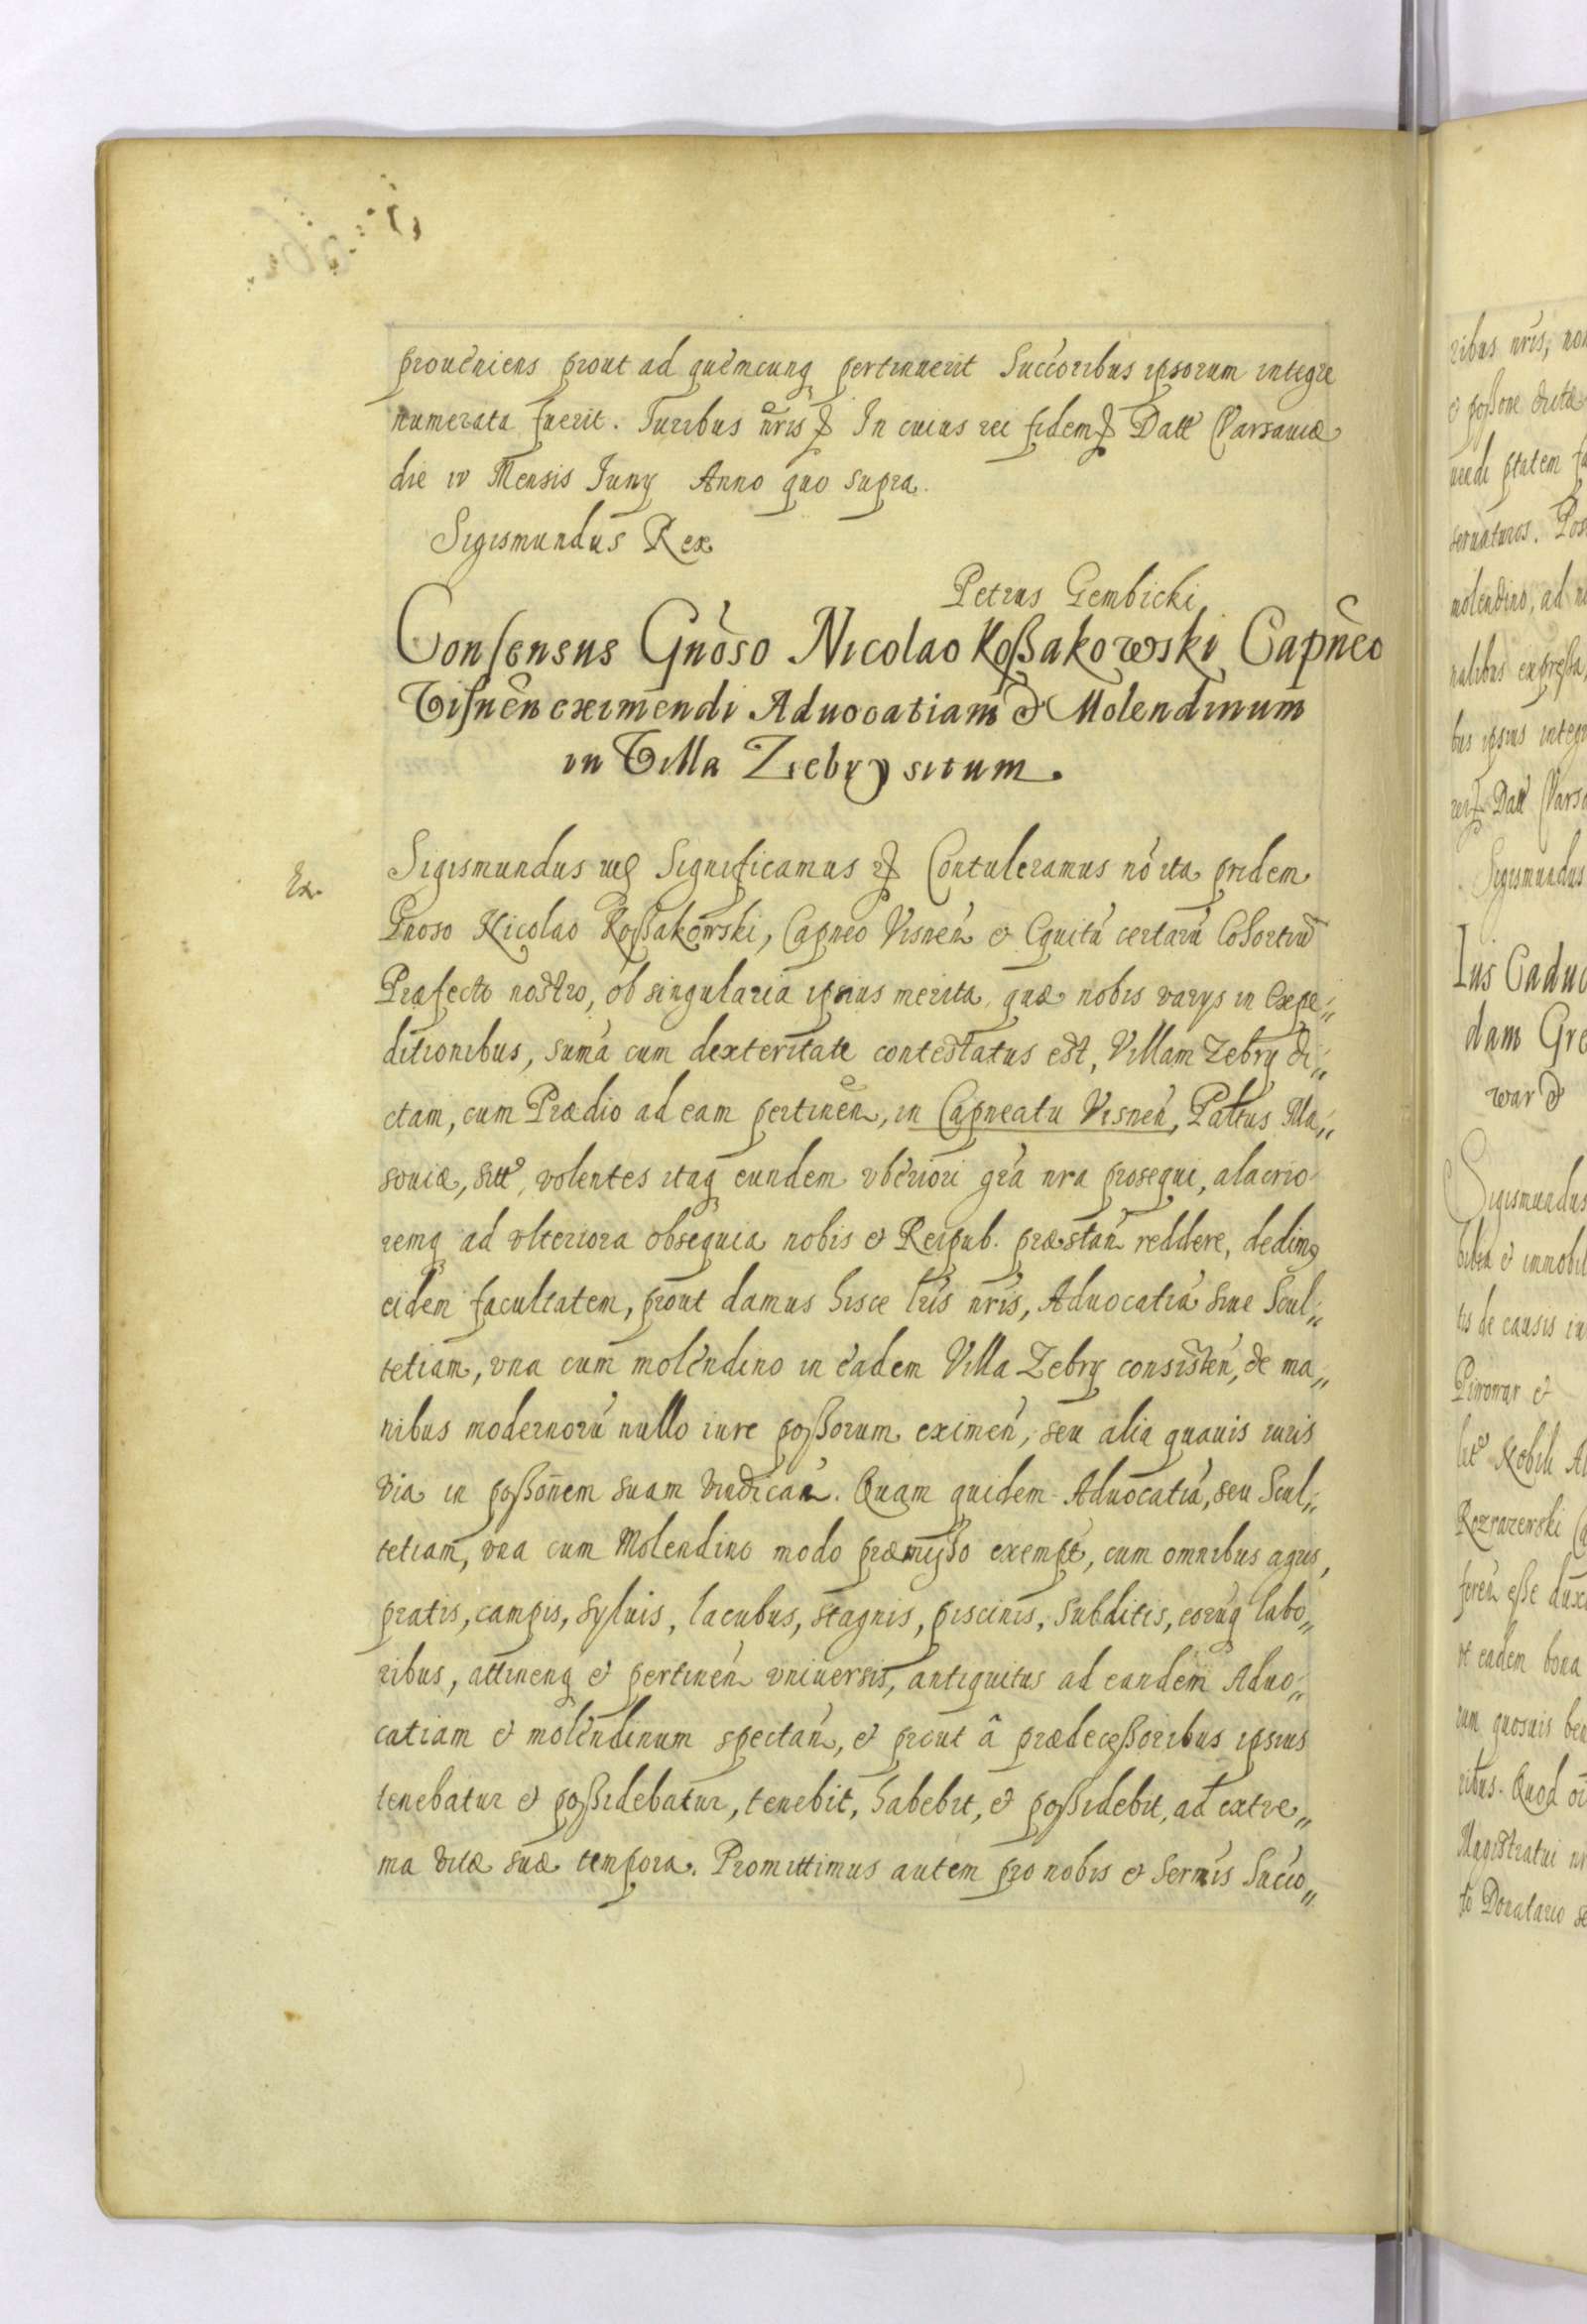 proueniens prout ad quemcunq pertinuerit Succoribus ipsorum integre
numerata fuerit. Iuribus nris In cuius rei fidem Datt Varsauiæ
die IV Mensis Iuny Anno quo supra.
Sigismundus Rex
Petrus Gembicki
Consensus Gnoso Nicolao Koßakowski Capneo
Visnen eximendi Aduocatiam & Molendinum
in Villa Ziebry situm.
Ex.
Sigismundus Significamus Contuleramus nō ita pridem
Gnoso Nicolao Koßakowski, Capneo Visnen & Equitū certarū Cohortiū
Præfecto nostro, ob singularia ipsius merita quæ nobis varys in Expe„
ditionibus, sumā cum dexteritate contestatus est, Villam Zebry di„
ctam, cum Prædio ad eam pertinen, in Capneatu Visnen, Pattus Ma„
souiæ, sitt, volentes itaq eundem vberiori gra nra prosequi, alacrio
remq ad vlteriora obsequia nobis & Reipub. præstan reddere, dedimꝰ
eidem facultatem, prout damus hisce lris nris, Aduocatiā siue Scul„
tetiam, vna cum molendino in eadem Villa Zebry consisten, de ma„
nibus modernorū nullo iure poßorum eximen, seu alia quauis iuris
via in poßonem suam vindican. Quam quidem Aduocatiā, seu Scul„
tetiam, vna cum Molendino modo præmißo exempt, cum omnibus agris,
pratis, campis, syluis, lacubus, stagnis, piscinis, subditis, eorūq labo„
ribus, attinenq & pertinen vniuersis, antiquitus ad eandem Aduo„
catiam & molendinum spectan, & prout â prædeceßoribus ipsius
tenebatur & poßidebatur, tenebit, habebit, & poßidebit, ad extre„
ma vitæ suæ tempora. Promittimus autem pro nobis & Sermis Succo„
ribus nris, non
& poßone
seruaturos. Pos
molendino, ad
nalibus expreßa,
bus ipsius integr
Datt Varsa
Sigismundus
Ius Caduc
dam Gre
war &
Sigismundus
bilia & immobil
tis de causis
Piwowar &
Nobili
ferēn eße dux
vt eadem bona
rum quosuis
ribus. Quod
Magistratui
to Donatario